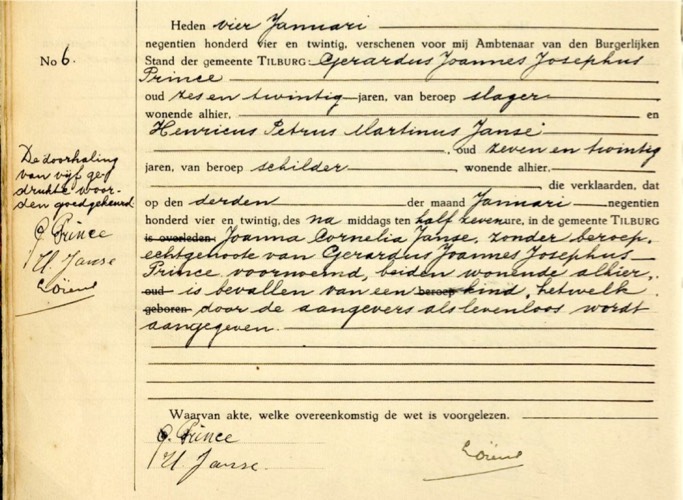 Heden vier Januari
No 6.
negentien honderd vier en twintig, verschenen voor mij Ambtenaar van den Burgerlijken
Stand der gemeente TILBURG: Gerardus Joannes Josephus
Prince
oud zes en twintig jaren, van beroep slager
wonende alhier, en
Henricus Petrus Martinus Janse
, oud zeven en twintig
jaren, van beroep schilder, wonende alhier,
, die verklaarden, dat
op den derden der maand Januari negentien
honderd vier en twintig, des na middags ten half zeven ure, in de gemeente TILBURG
is overleden: Joanna Cornelia Janse, zonder beroep,
echtgenoote van Gerardus Joannes Josephus
Prince voornoemd, beiden wonende alhier,
oud is bevallen van een beroep kind, hetwelk
geboren door de aangevers als levenloos wordt
aangegeven.
De doorhaling
van vijf ge-
drukte woor-
den goedgekeurd
G. Prince
H. Janse
Waarvan akte, welke overeenkomstig de wet is voorgelezen.
G. Prince
H. Janse.